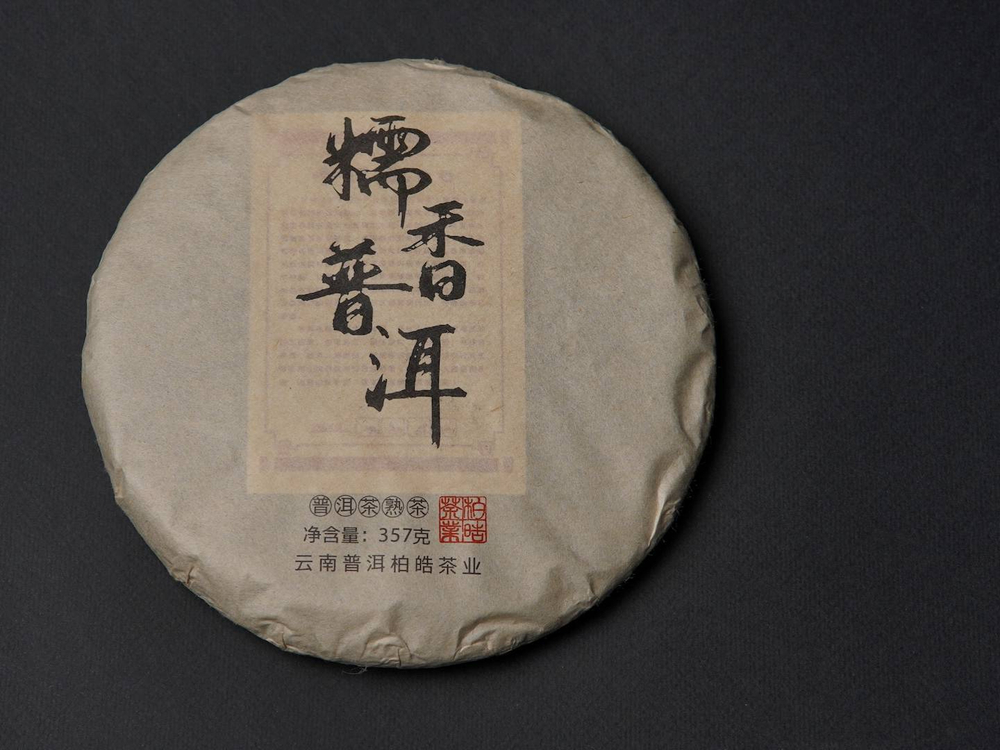 糯香
普洱
普洱茶熟茶
柏皓茶業
净含量：357克
云南普洱柏皓茶业